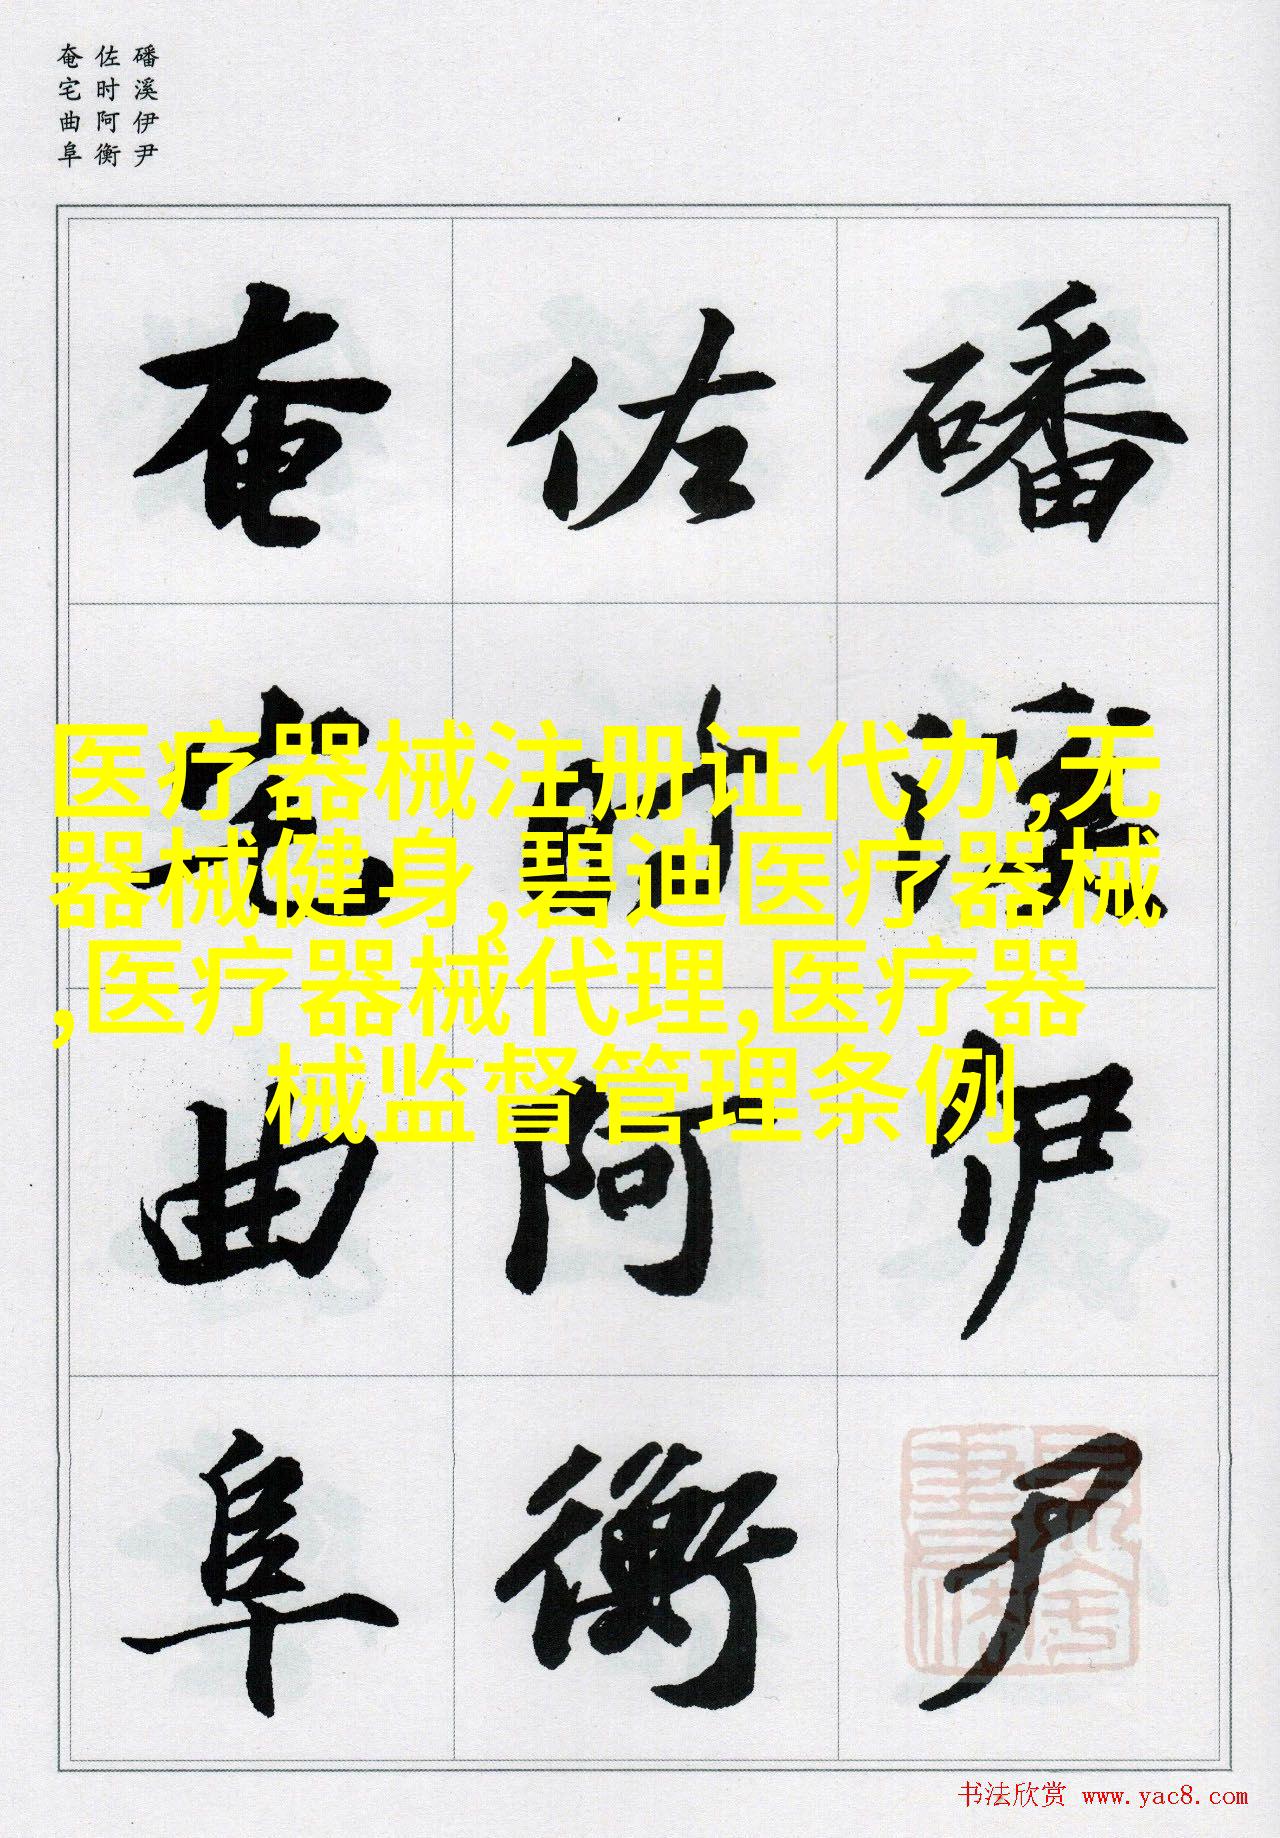 磻溪伊尹
佐时阿衡
奄宅曲阜
磻溪伊尹
佐时阿衡
奄宅曲阜
医疗器械注册证代办,无
器械健身,碧迪医疗器械
,医疗器械代理,医疗器
械监督管理条例
书法欣赏 www.yac8.com